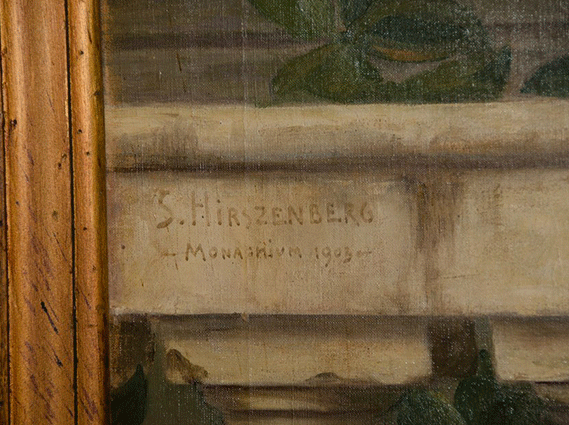 S. HIRSZENBERG
- MONACHIUM 1903 -